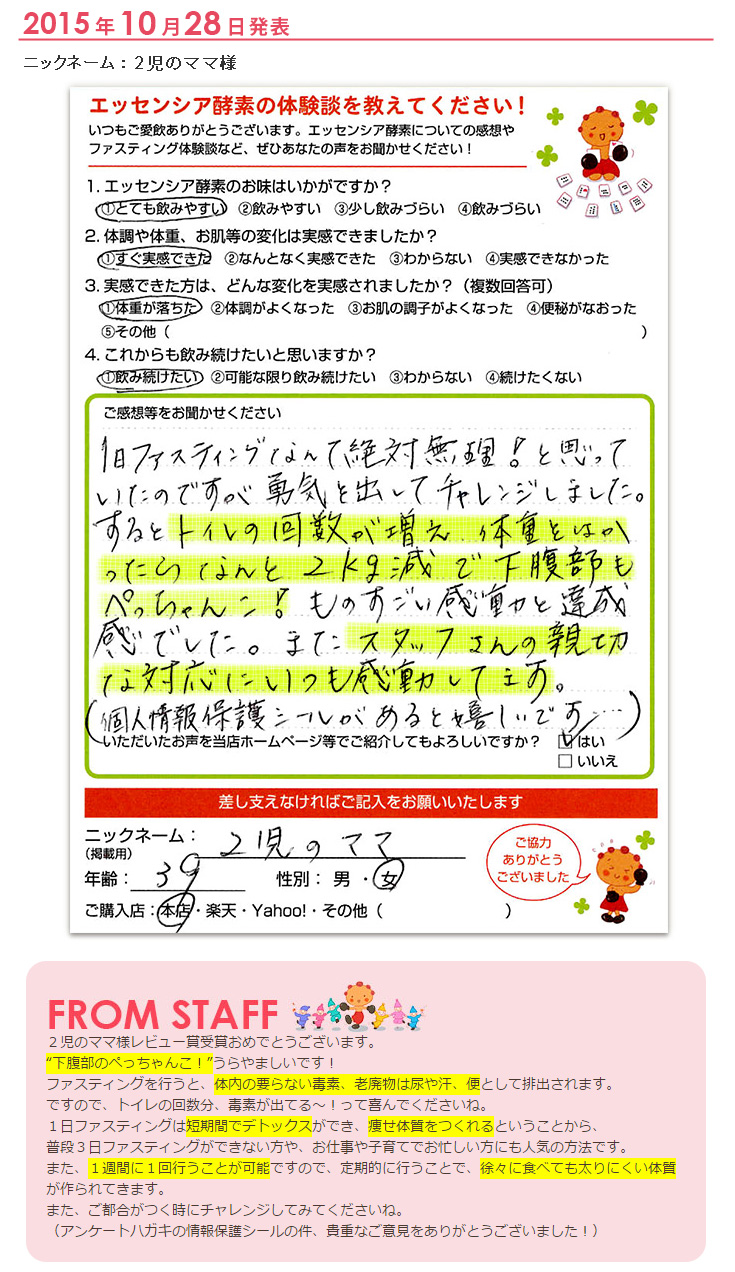 2015年10月28日発表
ニックネーム：２児のママ様
エッセンシア酵素の体験談を教えてください！
いつもご愛飲ありがとうございます。エッセンシア酵素についての感想や
ファスティング体験談など、ぜひあなたの声をお聞かせください！
1. エッセンシア酵素のお味はいかがですか？
①とても飲みやすい ②飲みやすい ③少し飲みづらい ④飲みづらい
2. 体調や体重、お肌等の変化は実感できましたか？
①すぐ実感できた ②なんとなく実感できた ③わからない ④実感できなかった
3. 実感できた方は、どんな変化を実感されましたか？（複数回答可）
①体重が落ちた ②体調がよくなった ③お肌の調子がよくなった ④便秘がなおった
⑤その他（ ）
4. これからも飲み続けたいと思いますか？
①飲み続けたい ②可能な限り飲み続けたい ③わからない ④続けたくない
ご感想等をお聞かせください
1日ファスティングなんて絶対無理！と思って
いたのですが勇気を出してチャレンジしました。
するとトイレの回数が増え、体重をはか
ったらなんと2kg減で下腹部も
ぺっちゃんこ！ものすごい感動と達成
感でした。またスタッフさんの親切
な対応にいつも感動してます。
（個人情報保護シールがあると嬉しいです…）
いただいたお声を当店ホームページ等でご紹介してもよろしいですか？ はい
いいえ
差し支えなければご記入をお願いいたします
ニックネーム： 2児のママ
（掲載用）
年齢： 39 性別： 男 ・ 女
ご購入店：本店・楽天・Yahoo!・その他（ ）
ご協力
ありがとう
ございました
FROM STAFF
２児のママ様レビュー賞受賞おめでとうございます。
“下腹部のぺっちゃんこ！”うらやましいです！
ファスティングを行うと、体内の要らない毒素、老廃物は尿や汗、便として排出されます。
ですので、トイレの回数分、毒素が出てる～！って喜んでくださいね。
１日ファスティングは短期間でデトックスができ、痩せ体質をつくれるということから、
普段３日ファスティングができない方や、お仕事や子育てでお忙しい方にも人気の方法です。
また、１週間に１回行うことが可能ですので、定期的に行うことで、徐々に食べても太りにくい体質
が作られてきます。
また、ご都合がつく時にチャレンジしてみてくださいね。
（アンケートハガキの情報保護シールの件、貴重なご意見をありがとうございました！）